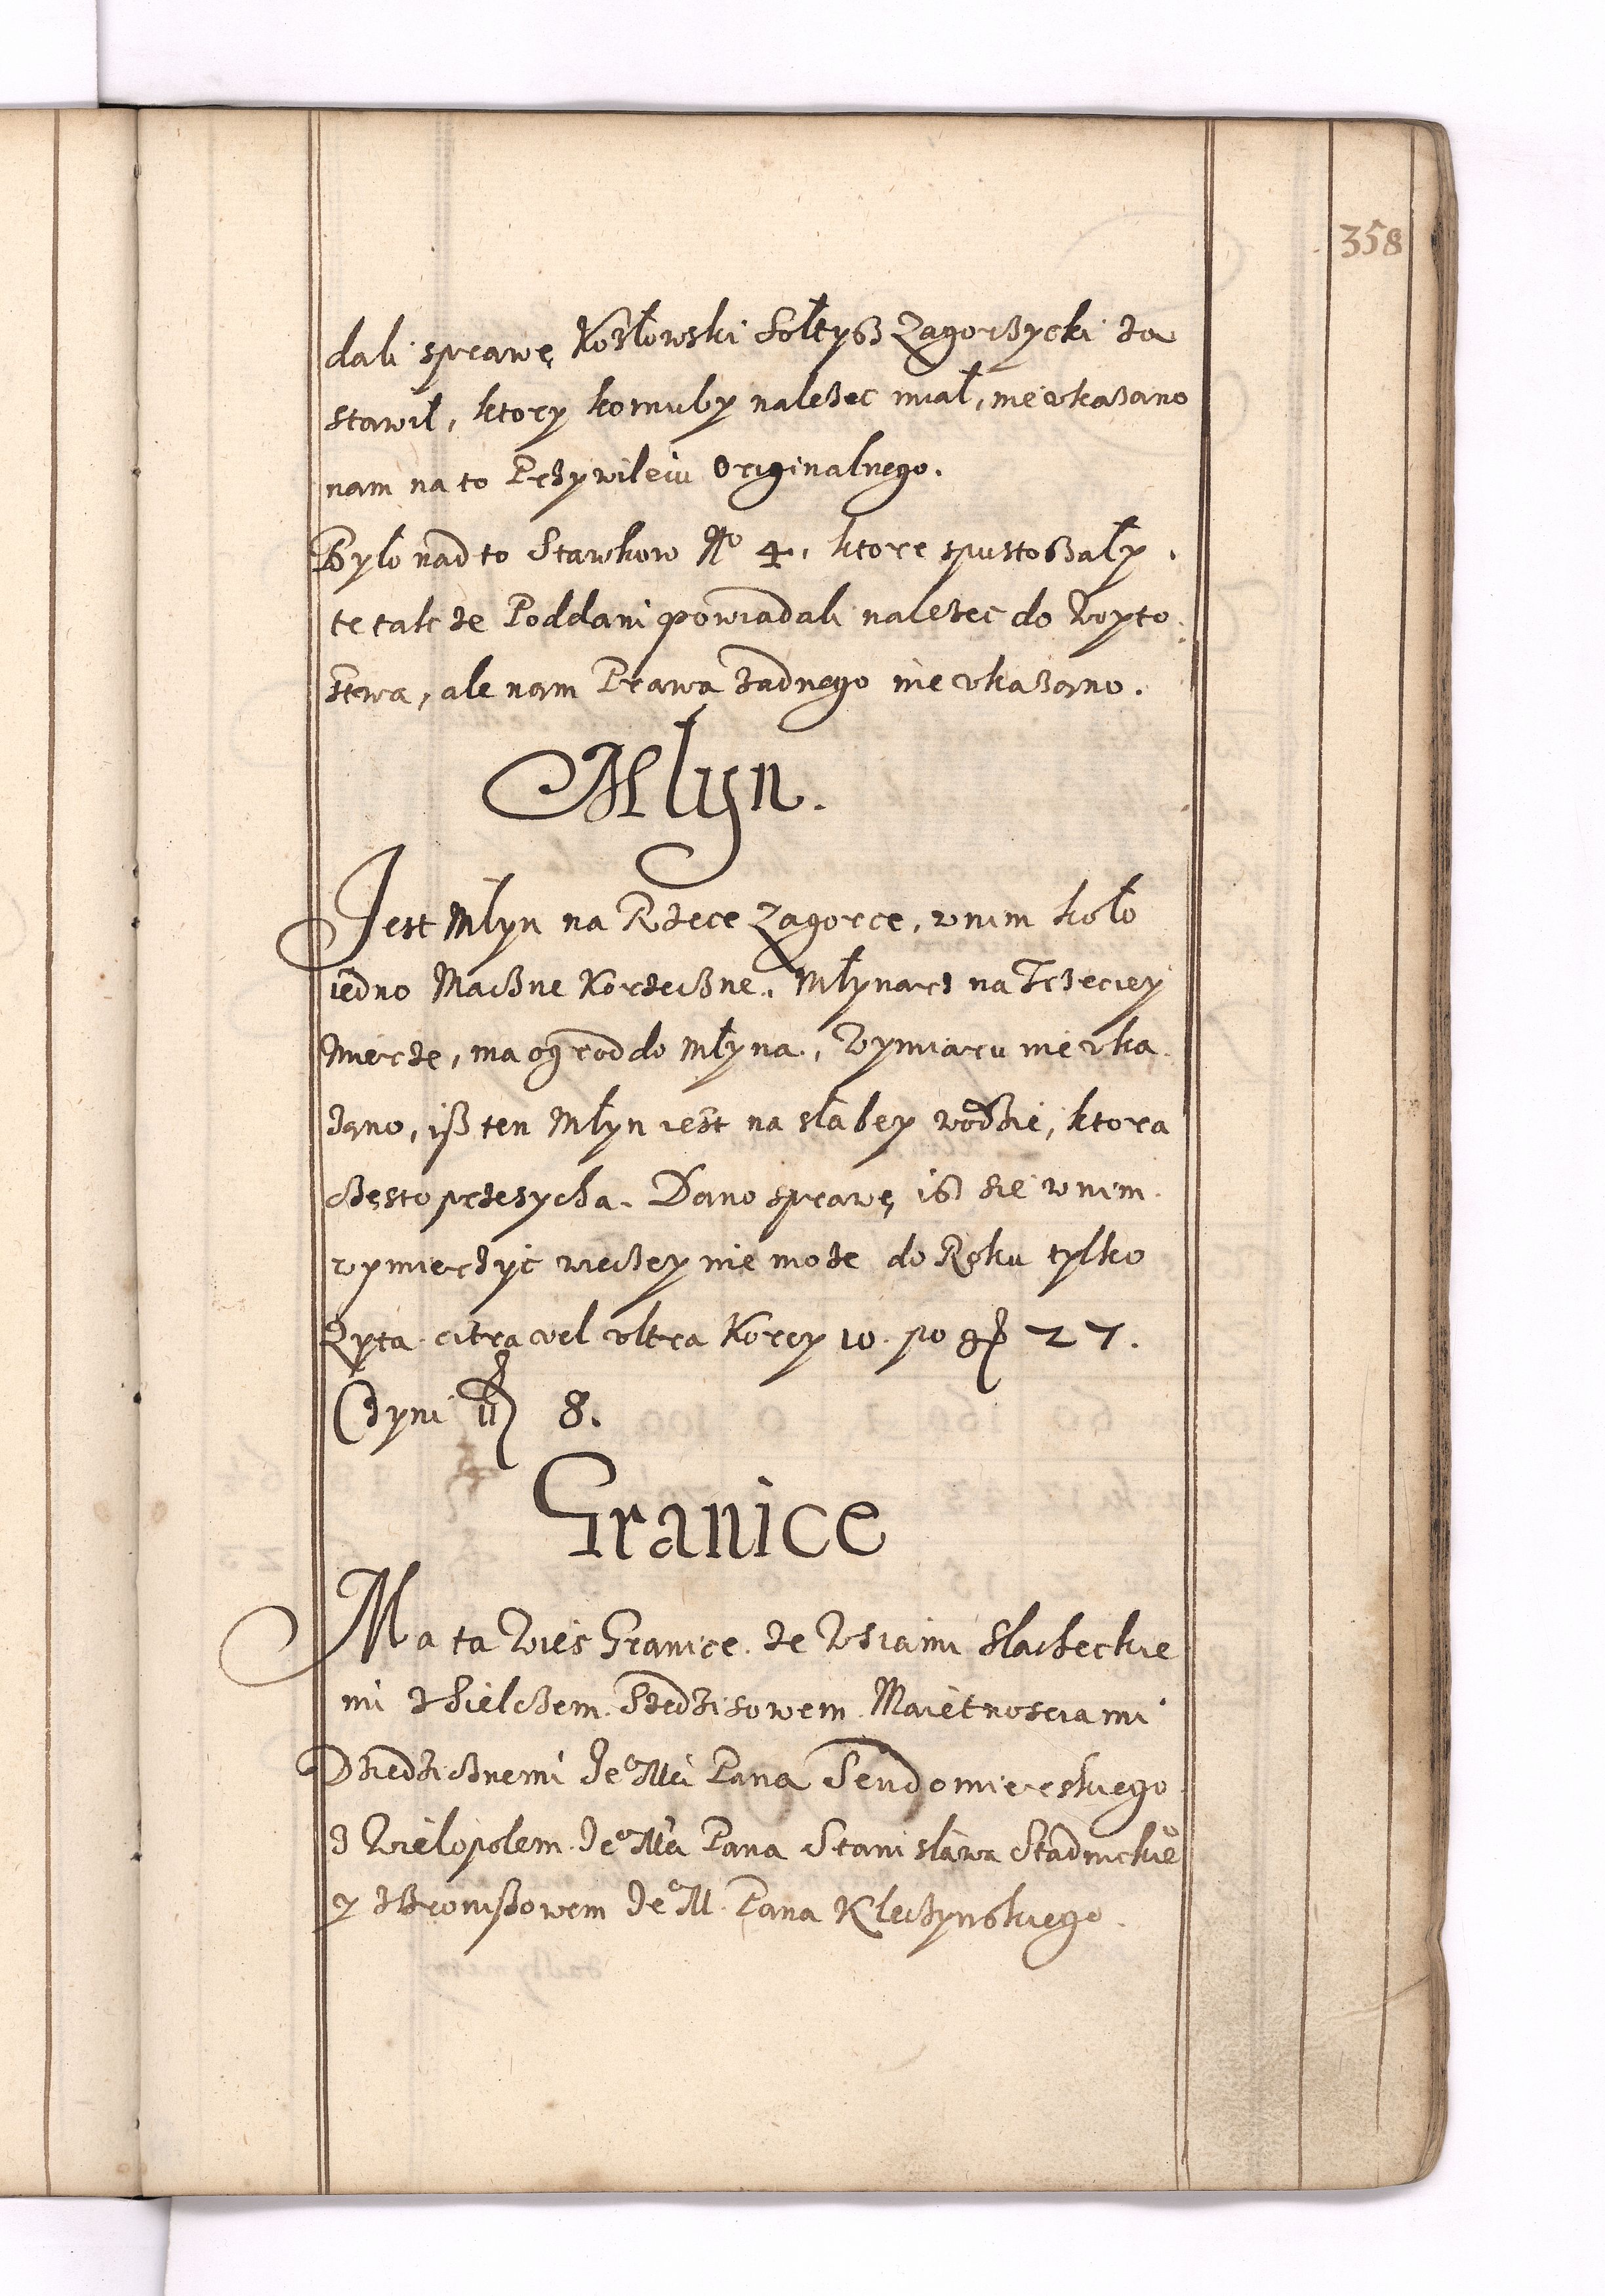 358
dali sprawę Kozłowski Sołtysz Zagorzycki za
stawił, ktory komuby nalezec miał, nie vkazano
nam na to Przywileiu Originalnego.
Było nad to Stawkow No 4. ktore spustoszały.
te takze Poddani powiadali nalezec do Woyto
stwa, ale nam Prawa zadnego nie vkazano.
Młyn.
Jest Młyn na Rzece Zagorce, w nim koło
iedno Maczne Korzeczne. Młynarz na Trzeciey
Mierze, ma ogrod do Młyna, Wymiaru nie vka
zano, isz ten Młyn iest na słabey wodzie, ktora
często przesycha. Dano sprawę isz sie w nim
wymierzyc wieczey nie moze do Roku tylko
Zyta citra vel vltra Korcy 10. po gr 27.
Czyni fl 8.
Granice
Ma ta Wies Granice ze Wsiami Slacheckie
mi z Sielczem. Szedzisowem Maietnosciami
Dziedzicznemi Jeo Mci Pana Sendomierskiego
z Wielopolem Jeo Mci Pana Stanisława Stadnickieo
y z Broniszowem Jeo M. Pana Kleczynskiego.